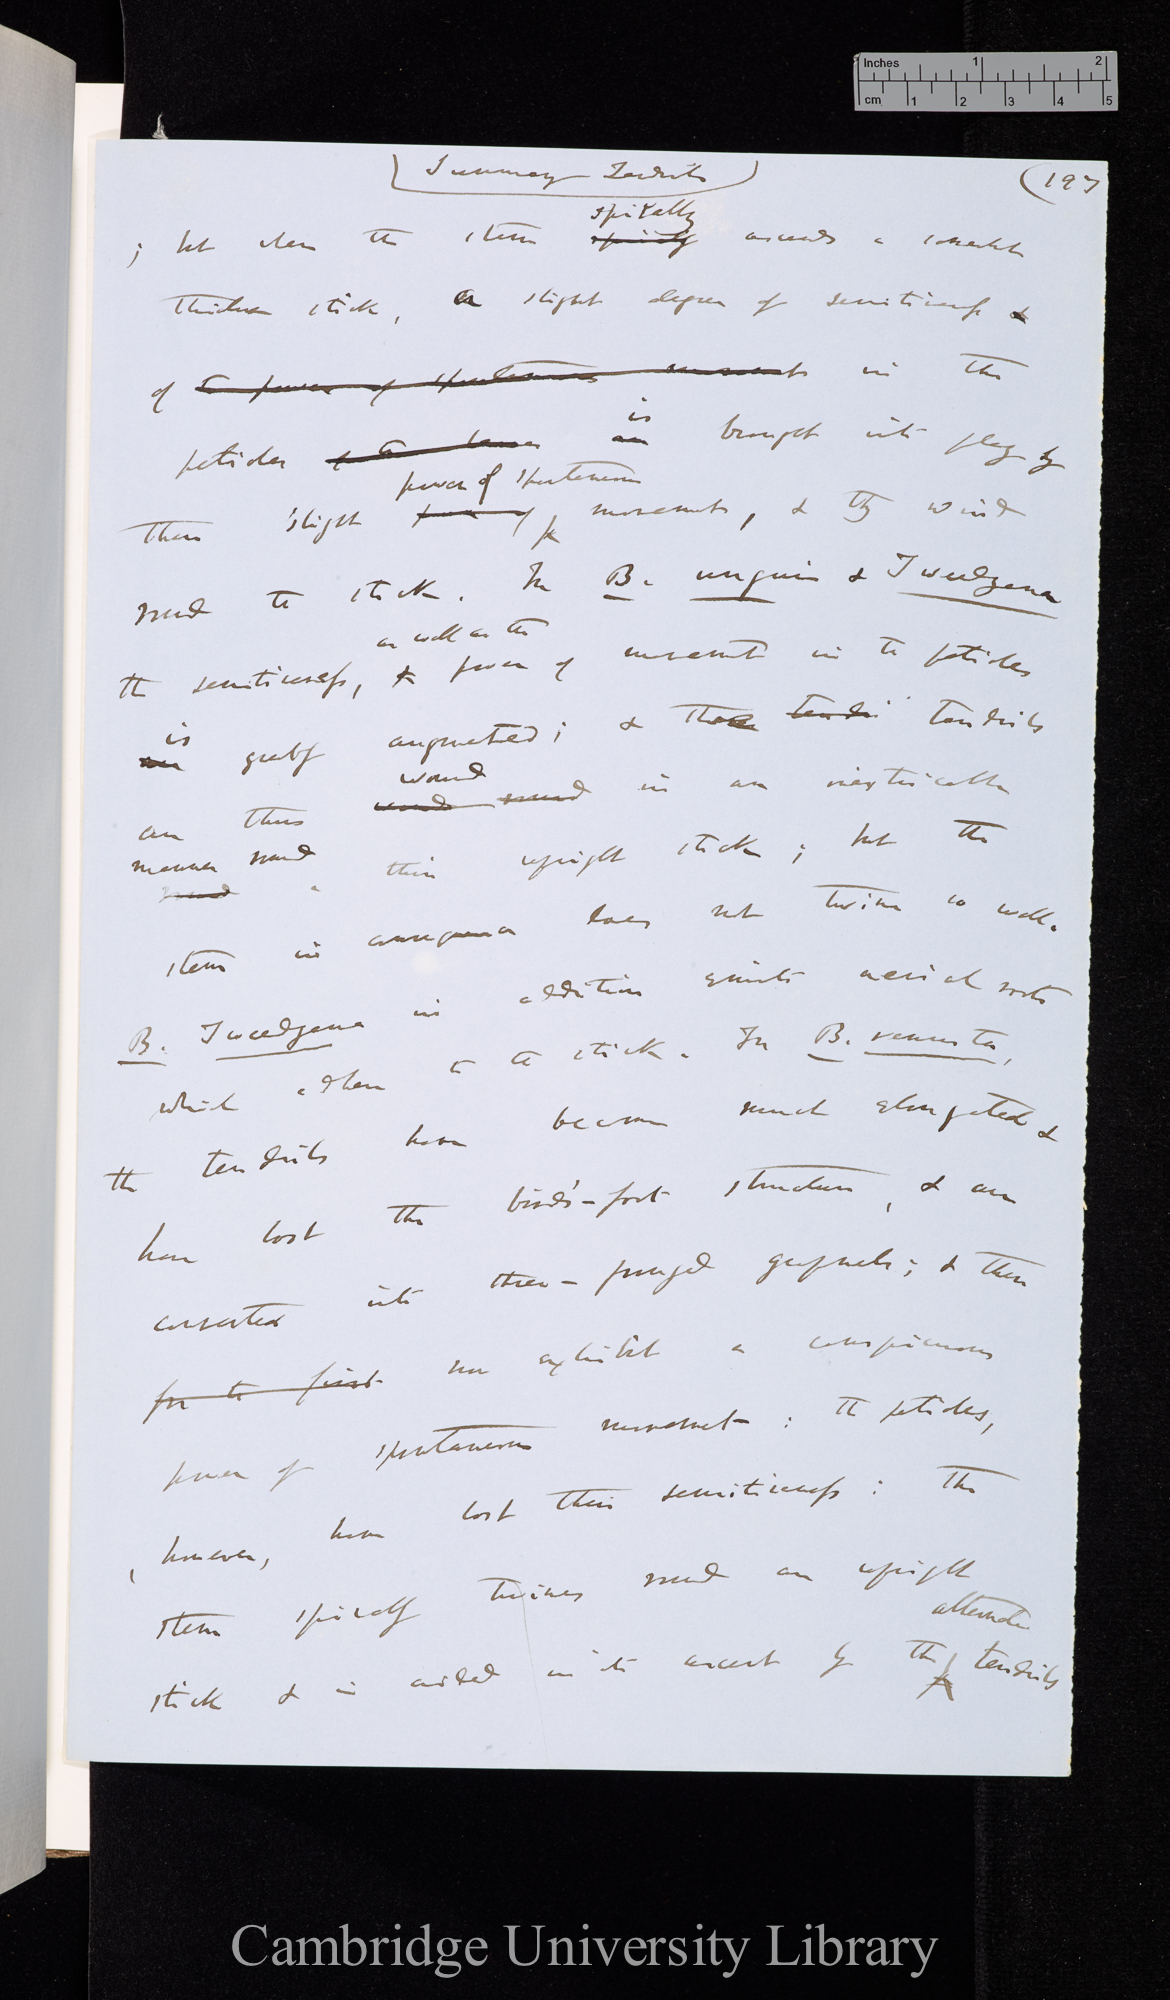 Inches 1 2
cm 1 2 3 4 5
Summary Tendrils
(197
spirally
; but when the stem spirally ascends a somewhat
thicker stick, a slight degree of sensitiveness &
of the power of spontaneous movements in the
is
petioles & to have are brought into play by
power of spontaneous
their slight power of movements, & they wind
round the stick. In B. unguis & Tweedyana
as well as the
the sensitiveness, & power of movement in the petioles
is
are greatly augmented; & these tendri tendrils
wound
are thus wound round in an inextricable
manner round
round a thin upright stick; but the
stem in consequence does not twine so well.
B. Tweedyana in addition emits aerial roots
which adhere to the stick. In B. venusta,
the tendrils have become much elongated &
have lost the bird's-foot structure, & are
converted into three-pronged grapnels; & these
for the first now exhibit a conspicuous
power of spontaneous movement: the petioles,
, however, have lost their sensitiveness: The
stem spirally twines round an upright
alternate
stick & is aided in its ascent by the tendrils
Cambridge University Library